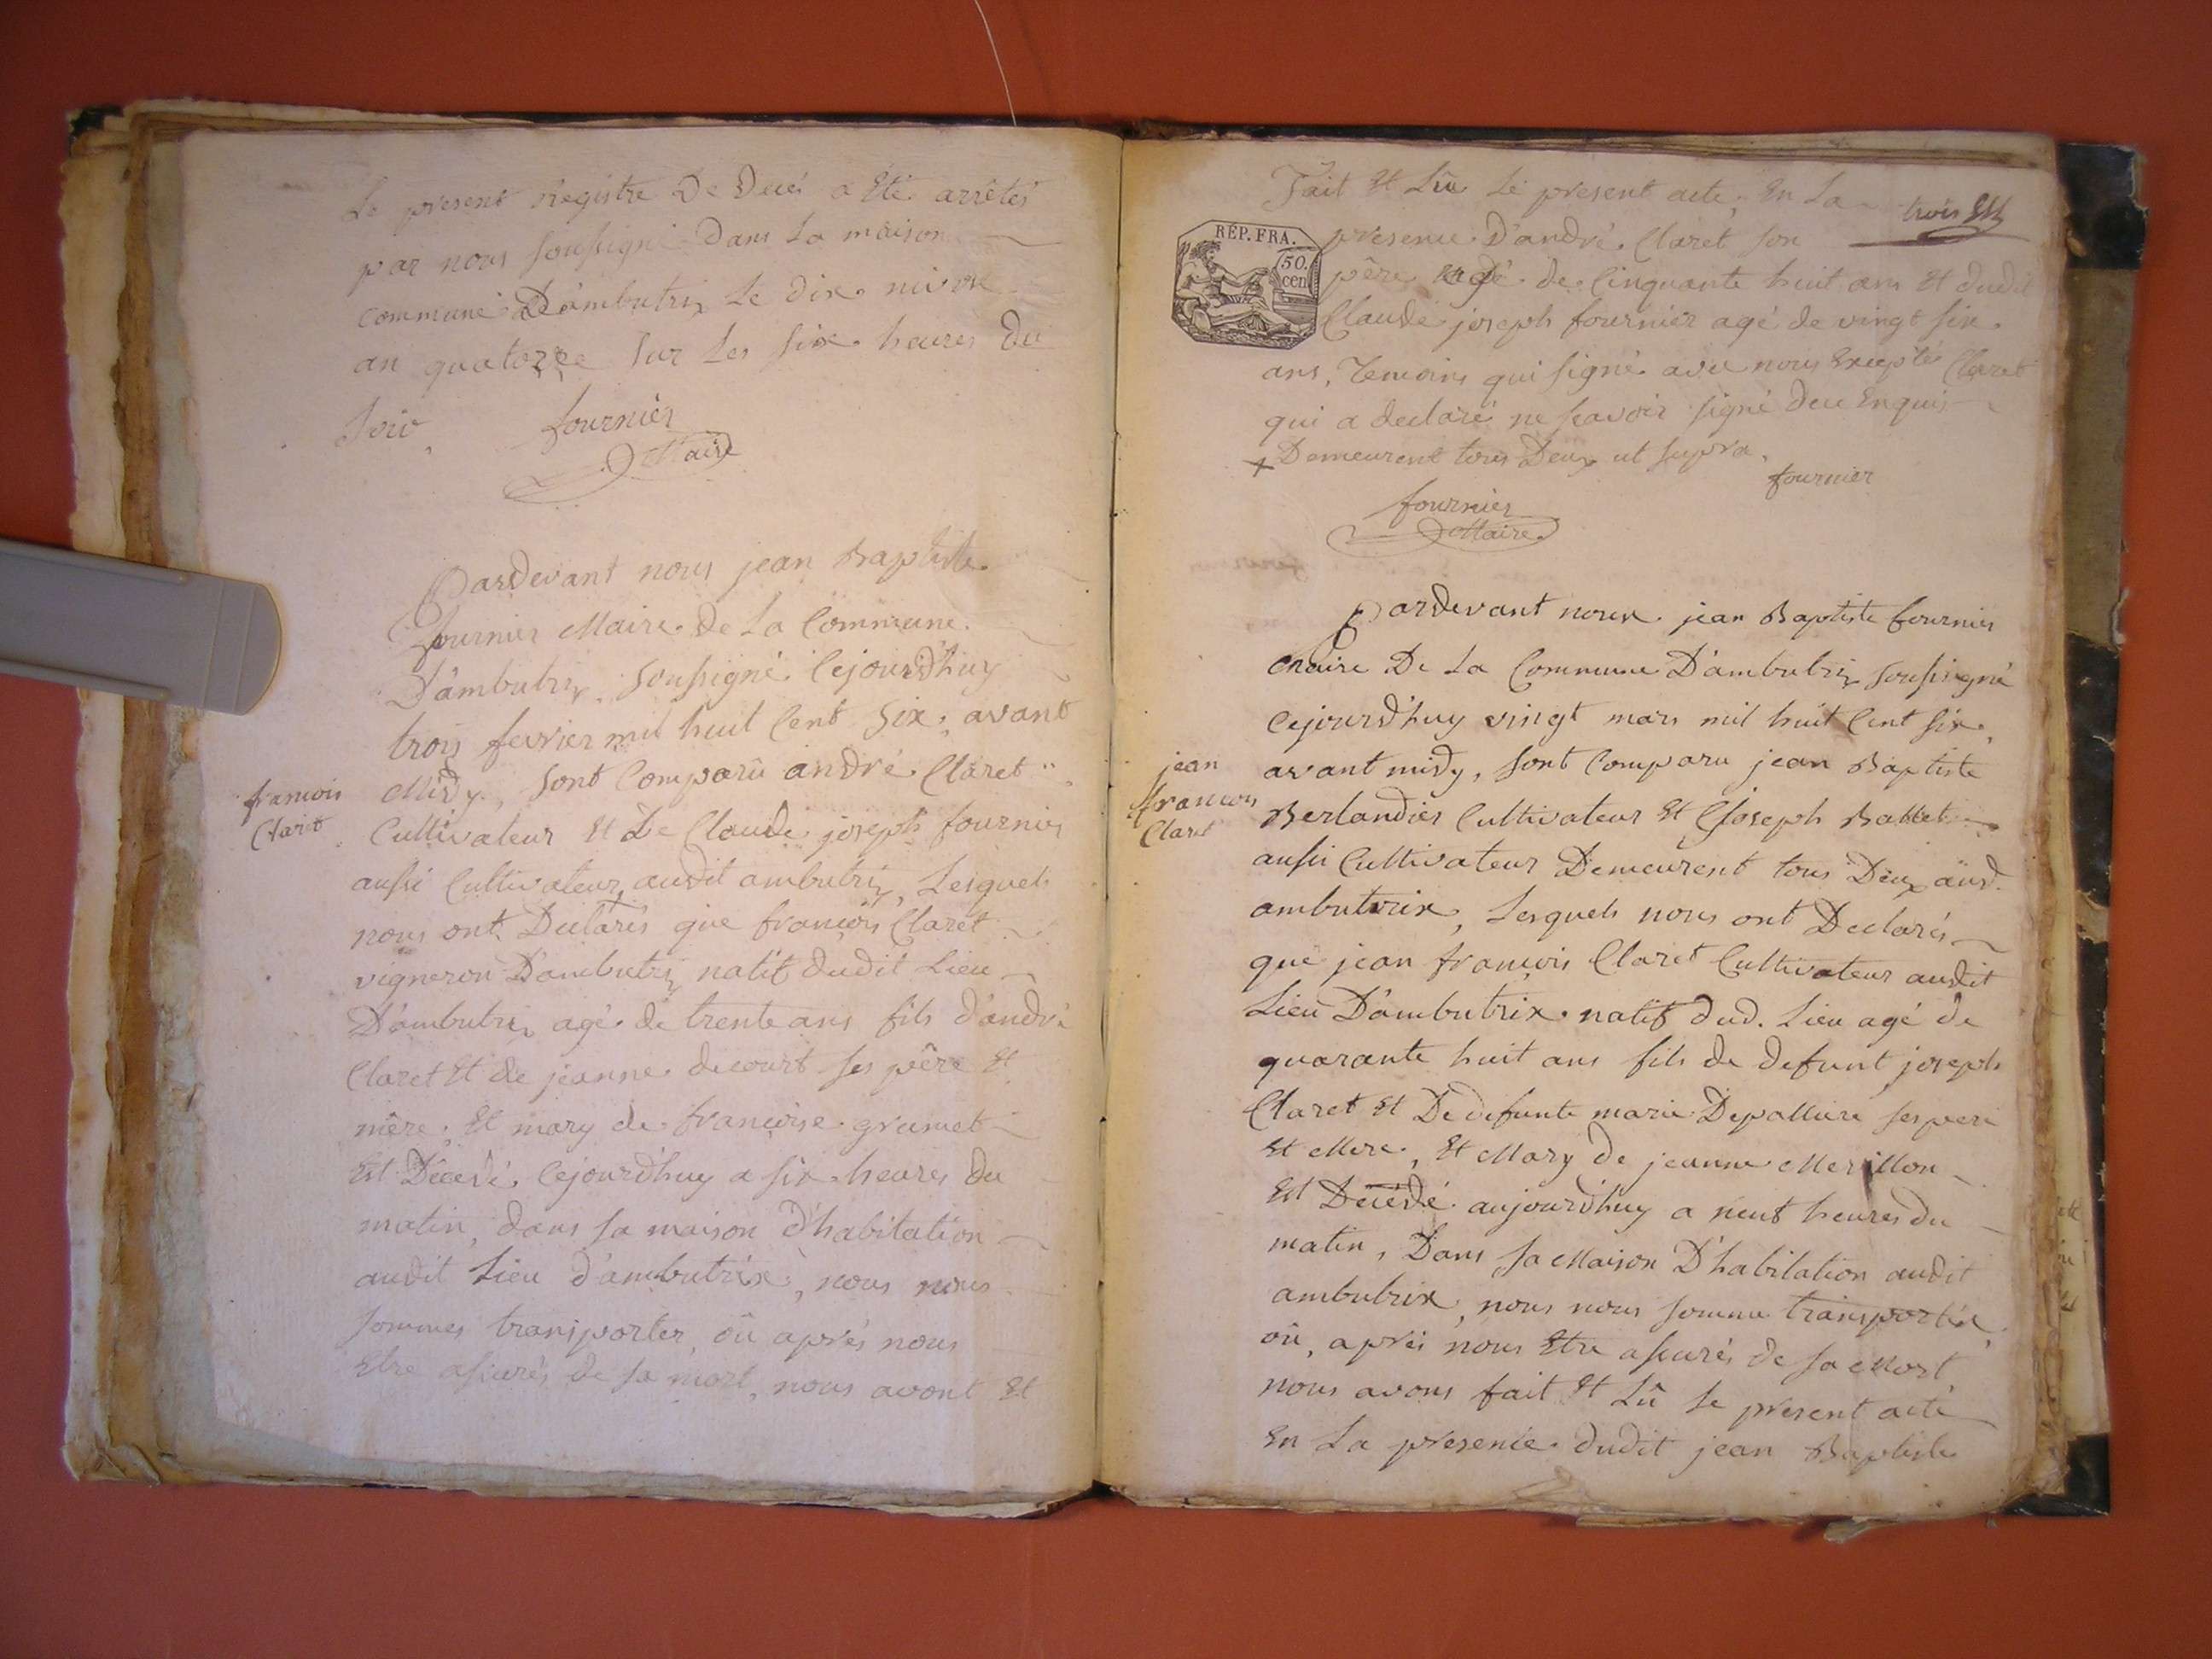 Le present registre De Decé a Eté arrêtés
par nous soussigné dans la maison
commune D'ambutrix Le dix nivose
an quatorze sur Les six heures du
soir
fournier
Maire
Pardevant nous jean Baptiste
fournier Maire de La Commune
D'ambutrix soussigné Cejourd'huy
trois fevrier mil huit Cent six, avant
Midy, sont Comparû andré Claret
francois
Claret
Cultivateur Et De Claude joseph fournier
aussi Cultivateur, audit ambutrix, Lesquels
nous ont Declarés que francois Claret
vigneron D'ambutrix natif dudit Lieu
D'ambutrix agé de trente ans fils d'andré
Claret Et de jeanne decourt ses père Et
mère, Et mary de francoise grumet
Est Décedé Cejourd'huy a six heures du
matin, dans sa maison d'habitation
audit Lieu d'ambutrix, nous nous
sommes transporter, où aprés nous
Etre assurés de sa mort, nous avont Et
Fait Et Lûe Le present acte, En La
trois
RÉP. FRA.
50.
cen
presence D'andré Claret son
père agé de Cinquante huit ans Et dudit
Claude joseph fournier agé de vingt six
ans, Temoins qui signé avec nous Excepté Claret
qui a declaré ne scavoir signé dece Enquis
+ Demeurent tous Deux ut supra.
fournier
fournier
Maire
Pardevant nous jean Baptiste fournier
Maire De La Commune D'ambutrix soussigné
Cejourd'huy vingt mars mil huit Cent six,
avant midy, sont Comparu jean Baptiste
jean
francois
Claret
Berlandier Cultivateur Et Joseph Ballet
aussi Cultivateur Demeurent tous Deux aud.
ambutrix, Lesquels nous ont Declarés
que jean francois Claret Cultivateur audit
Lieu D'ambutrix natif dud. Lieu agé de
quarante huit ans fils de defunt joseph
Claret Et De defunte marie Depalliere ses pere
Et Mere, Et Mary de jeanne Merillon
Est Decédé aujourd'huy a neuf heures du
matin, Dans sa Maison D'habitation audit
ambutrix, nous nous somme transportés
où, aprés nous Etre assurés de sa Mort,
nous avons fait Et Lû Le present acte
En La presence dudit jean Baptiste